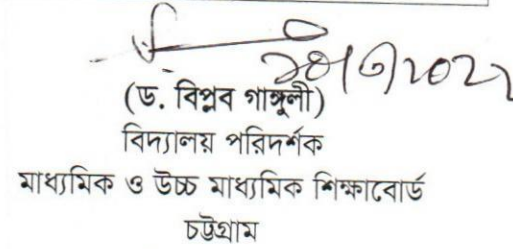 (ড. বিপ্লব গাঙ্গুলী)
বিদ্যালয় পরিদর্শক
মাধ্যমিক ও উচ্চ মাধ্যমিক শিক্ষাবোর্ড
চট্টগ্রাম